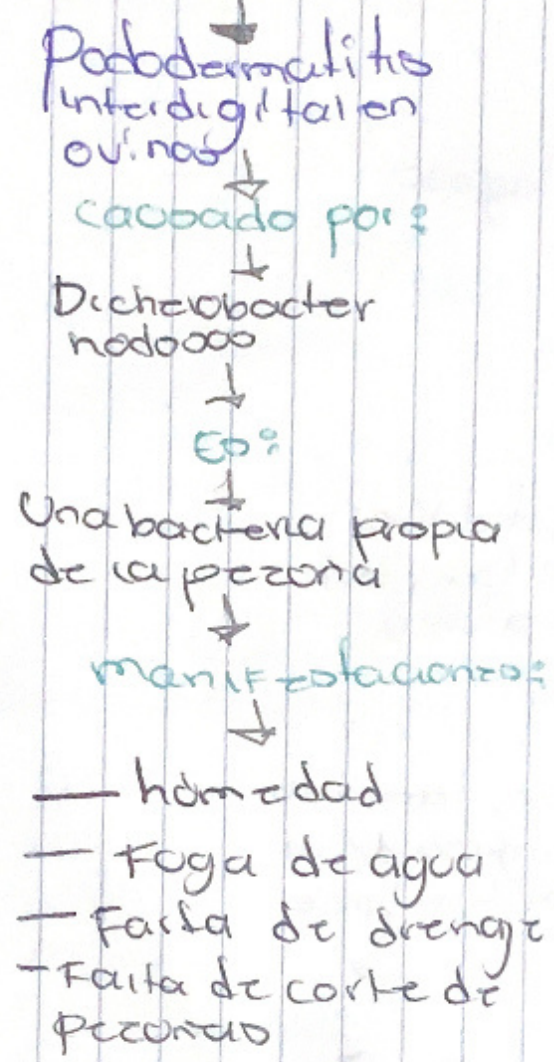 Pododermatitis
interdigital en
ovinos
causado por:
Dichelobacter
nodosos
Es:
Una bacteria propia
de la pezoña
manifestaciones:
— húmedad
— Fuga de agua
— Falta de drenaje
- Falta de corte de
pezoñas